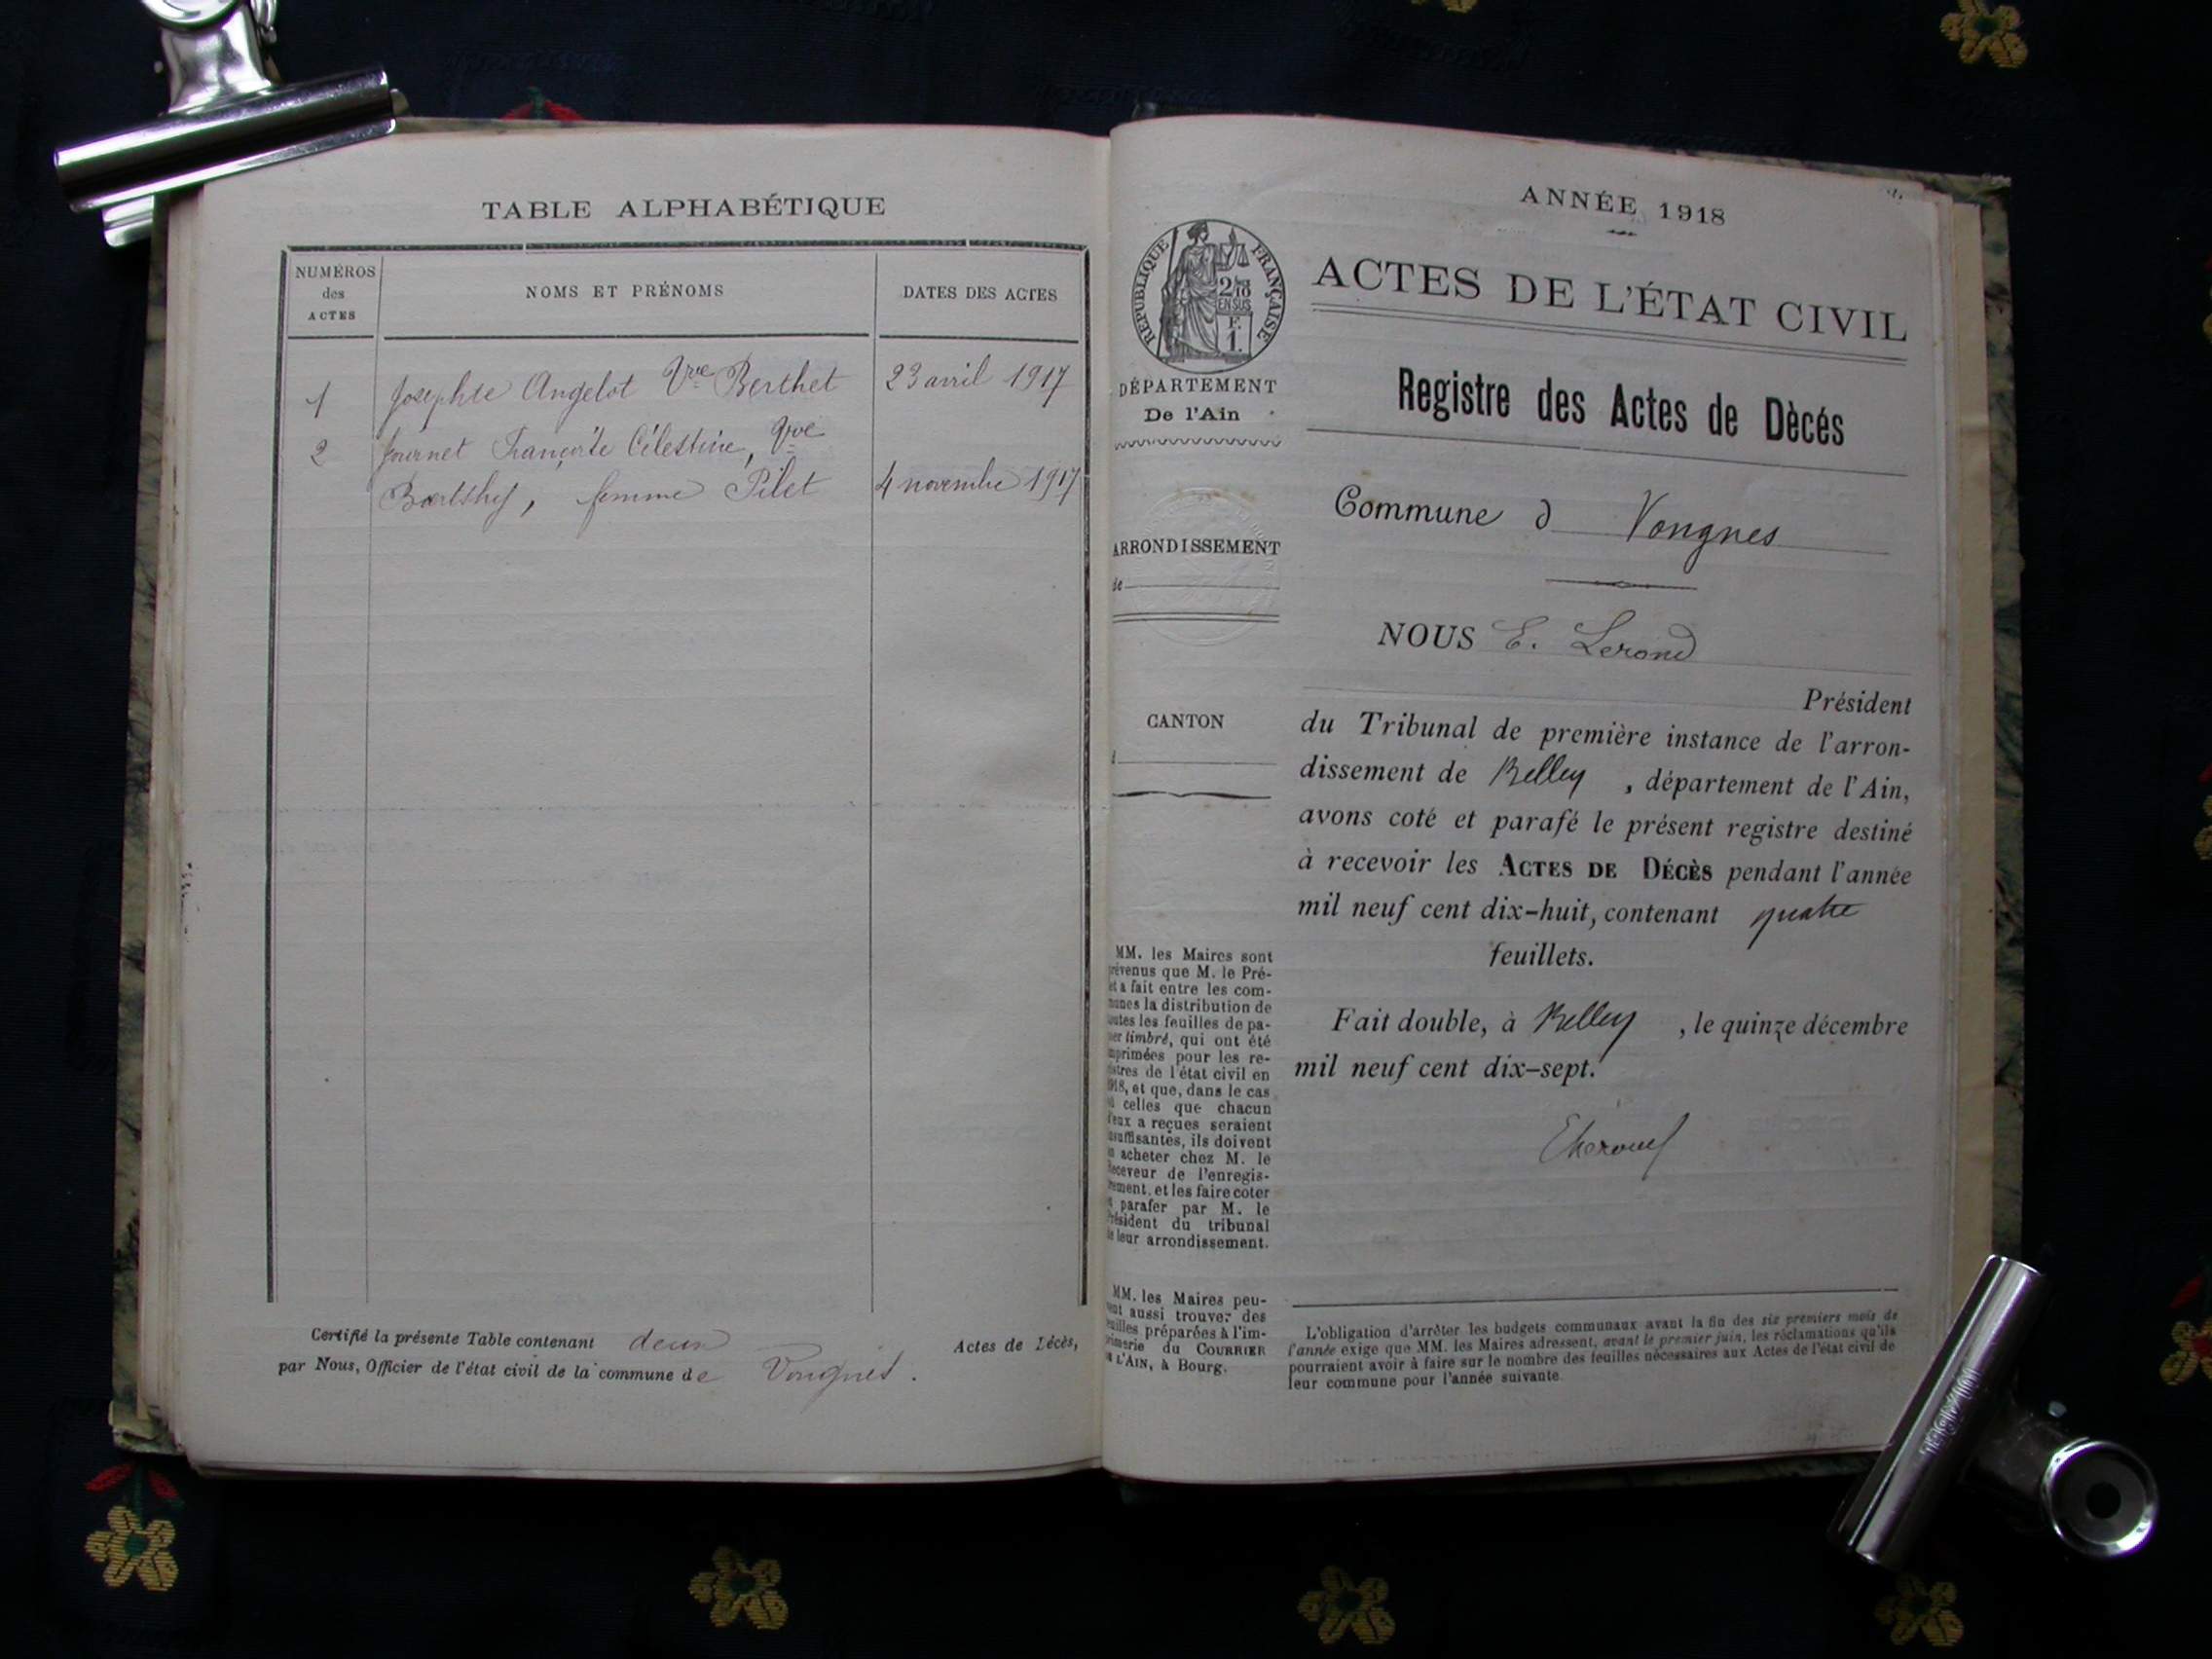 TABLE ALPHABÉTIQUE
NUMÉROS
des
ACTES
NOMS ET PRÉNOMS
DATES DES ACTES
1 Josephte Angelot Vve Berthet 23 avril 1917
2 Journet Françoise Célestine, Vve
femme Pilet 4 novembre 1917
Certifié la présente Table contenant deux Actes de Décès,
par Nous, Officier de l'état civil de la commune de Vongnes.
ANNÉE 1918
RÉPUBLIQUE FRANÇAISE
2/10
EN SUS
F.
1.
ACTES DE L'ÉTAT CIVIL
DÉPARTEMENT
De l'Ain
Registre des Actes de Dècés
Commune d Vongnes
ARRONDISSEMENT
de
NOUS E. Lerond
Président
CANTON
d
du Tribunal de première instance de l'arron-
dissement de Belley, département de l'Ain,
avons coté et parafé le présent registre destiné
à recevoir les ACTES DE DÉCÈS pendant l'année
mil neuf cent dix-huit, contenant quatre
feuillets.
Fait double, à Belley, le quinze décembre
mil neuf cent dix-sept.
MM. les Maires sont
prévenus que M. le Pré-
et a fait entre les com-
munes la distribution de
toutes les feuilles de pa-
pier timbré, qui ont été
imprimées pour les re-
gistres de l'état civil en
1918, et que, dans le cas
où celles que chacun
d'eux a reçues seraient
insuffisantes, ils doivent
en acheter chez M. le
Receveur de l'enregis-
trement, et les faire coter
et parafer par M. le
Président du tribunal
de leur arrondissement.
MM. les Maires peu-
vent aussi trouver des
feuilles préparées à l'im-
primerie du COURRIER
DE L'AIN, à Bourg.
L'obligation d'arrêter les budgets communaux avant la fin des six premiers mois de
l'année exige que MM. les Maires adressent, avant le premier juin, les réclamations qu'ils
pourraient avoir à faire sur le nombre des feuilles nécessaires aux Actes de l'état civil de
leur commune pour l'année suivante.